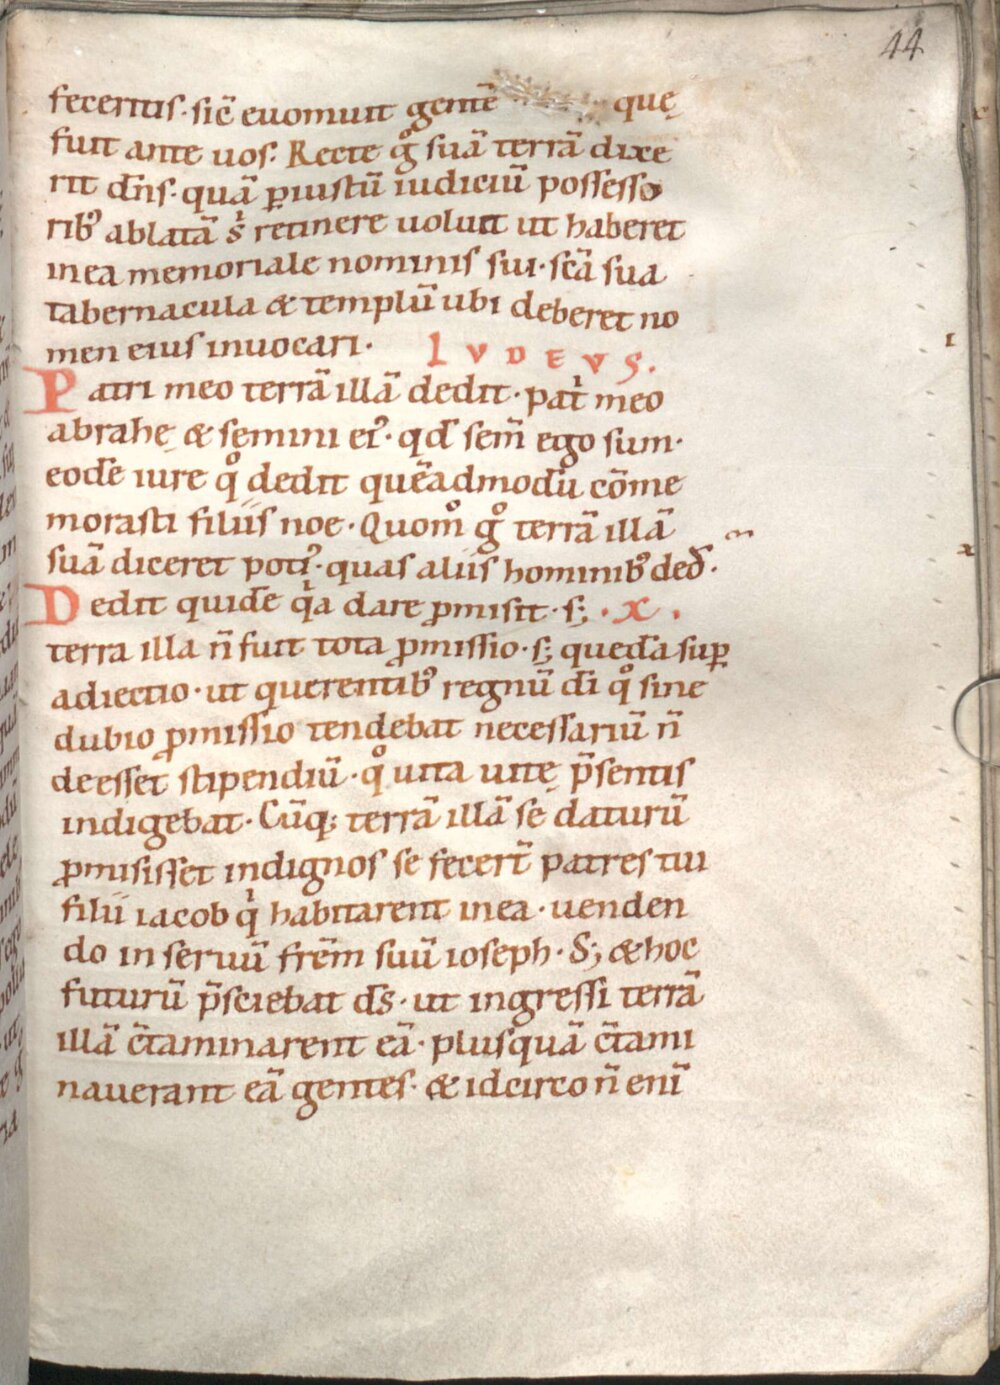 44
feceritis· sic̄ evomuit gentē quę
fuit ante uos· Recte gͦ suā terrā dixe
rit dn̄s· quā ꝑiustū iudiciū possesso
ribꝰ ablatā sͥ retinere uoluit ut haberet
in ea memoriale nominis sui· sc̄a sua
tabernacula & templū ubi deberet no
men eius inuocari· IVDEVS.
Patri meo terrā illā dedit· patͥ meo
abrahę & semini eiꝰ· qd̄ sem̄ ego sum·
eodē iure qͦ dedit quēadmodū cōme
morasti filiis noe· Quomͦ gͦ terrā illā
suā diceret potiꝰ· quas aliis hominibꝰ ded̄·
Dedit quidē qͥa dare ꝓmisit· s; · x ·
terra illa n̄ fuit tota ꝓmissio· s; quedā suꝑ
adiectio· ut querentibꝰ regnū dī qͦ sine
dubio ꝓmissio tendebat necessariū n̄
deesset stipendiū· qͦ uita uitę p̄sentis
indigebat· Cūq; terrā illā se daturū
ꝓmisisset indignos se fecer̄t patres tui
filii iacob qͥ habitarent in ea· uenden
do in seruū fr̄em suū ioseph· S; & hoc
futurū p̄sciebat ds̄· ut ingressi terrā
illā c̄taminarent eā· plusquā c̄tami
nauerant eā gentes· & idcirco n̄ enī